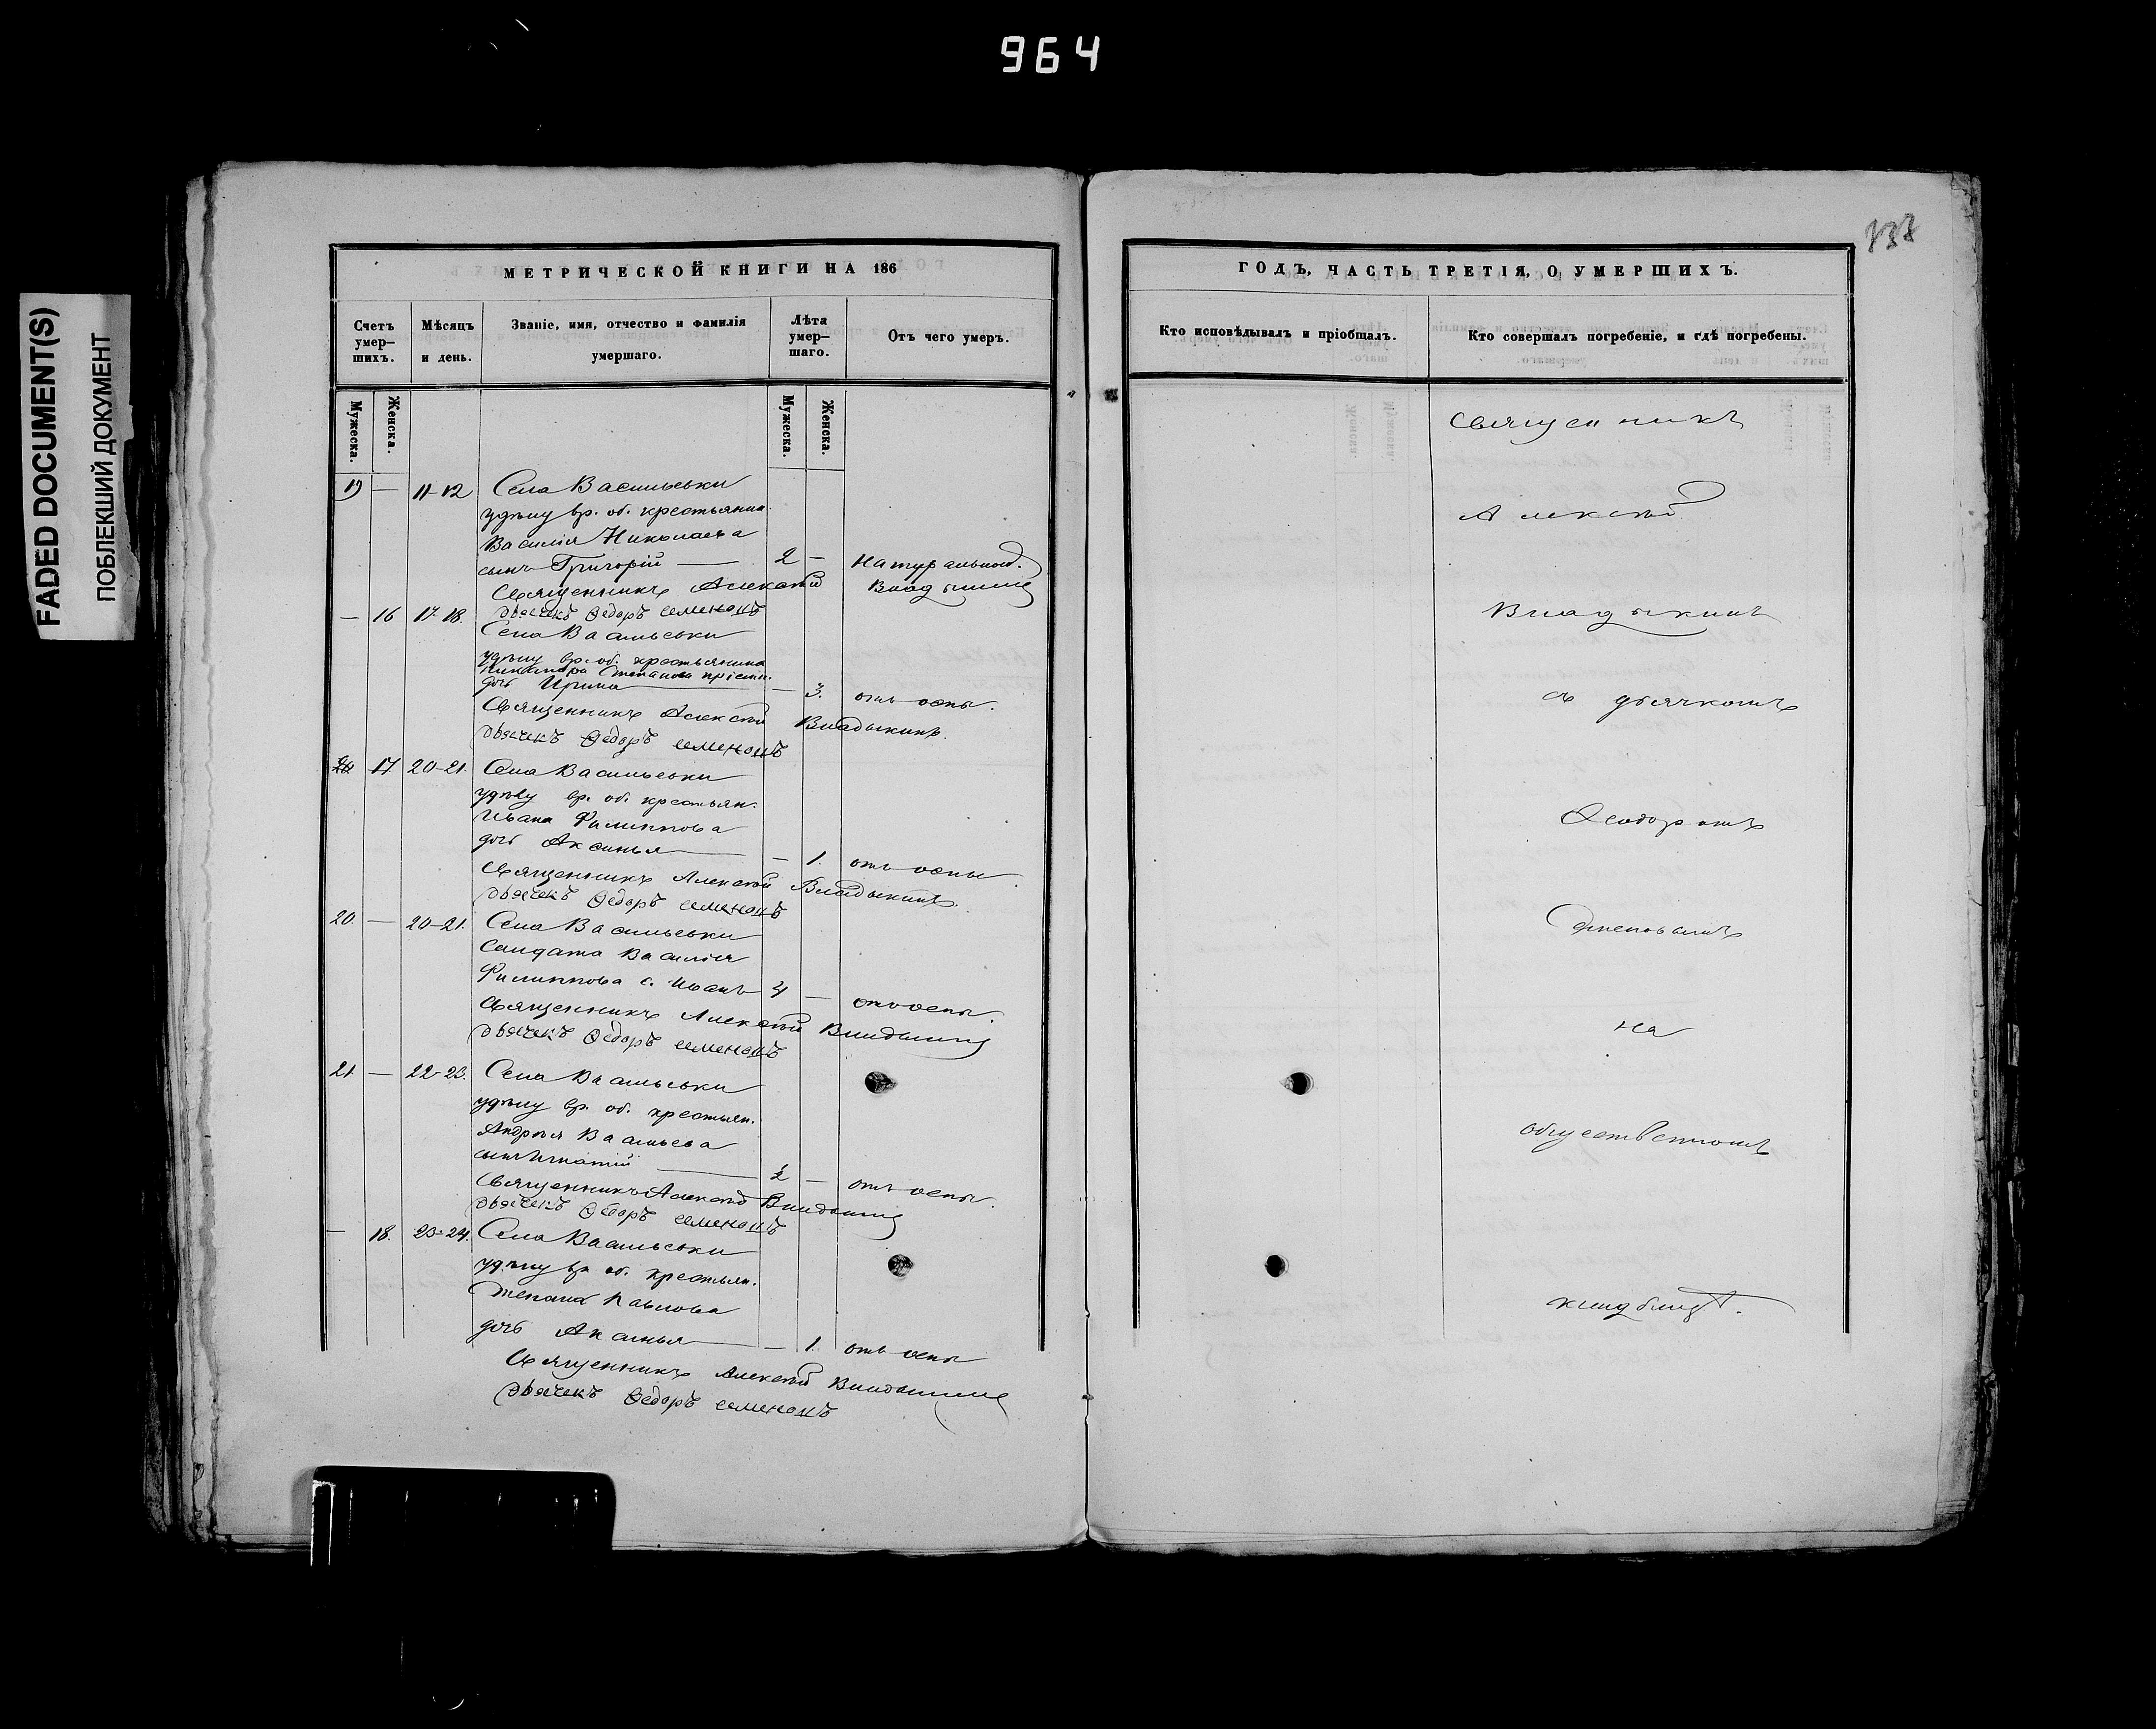 964
FADED DOCUMENT(S)
ПОБЛЕКШИЙ ДОКУМЕНТ
МЕТРИЧЕСКОЙ КНИГИ НА 186
Счетъ умер-шихъ.
Мѣсяцъ и день.
Званіе, имя, отчество и фамилія умершаго.
Лѣта умер-шаго.
Отъ чего умеръ.
Мужеска.
Женска.
Мужеска.
Женска.
19 — 11-12 Села Васильевки
удѣлу вр. об. крестьянин.
Василія Николаева
сынъ Григорій — 2 — натуральной.
Священникъ Алексѣй Владыкинъ
Дьячекъ Ѳедоръ Семеновъ
— 16 17-18. Села Васильевки
удѣлу вр. об. крестьянина
Никанора Степанова пріемн.
дочь Ирина — 3. отъ оспы.
Священникъ Алексѣй Владыкинъ.
Дьячекъ Ѳедоръ Семеновъ
17 20-21. Села Васильевки
удѣлу вр. об. крестьян.
Ивана Филиппова
дочь Аксинья — 1. отъ оспы.
Священникъ Алексѣй Владыкинъ.
Дьячекъ Ѳедоръ Семеновъ
20. — 20-21. Села Васильевки
Солдата Василія
Филиппова с. Иванъ 4 — отъ оспы.
Священникъ Алексѣй Владыкинъ
Дьячекъ Ѳедоръ Семеновъ
21. — 22-23. Села Васильевки
удѣлу вр. об. крестьян.
Андрея Васильева
сынъ Игнатій — — отъ оспы.
Священникъ Алексѣй Владыкинъ
Дьячекъ Ѳедоръ Семеновъ
— 18. 23-24. Села Васильевки
удѣлу вр. об. крестьян.
Степана Павлова
дочь Аксинья — 1. отъ оспы
Священникъ Алексѣй Владыкинъ
Дьячекъ Ѳедоръ Семеновъ
ГОДЪ, ЧАСТЬ ТРЕТІЯ, О УМЕРШИХЪ.
Кто исповѣдывалъ и пріобщалъ.
Кто совершалъ погребеніе, и гдѣ погребены.
Священникъ
Алексѣй
Владыкинъ
съ дьячкомъ
Ѳеодоромъ
на
общественномъ
кладбищѣ.